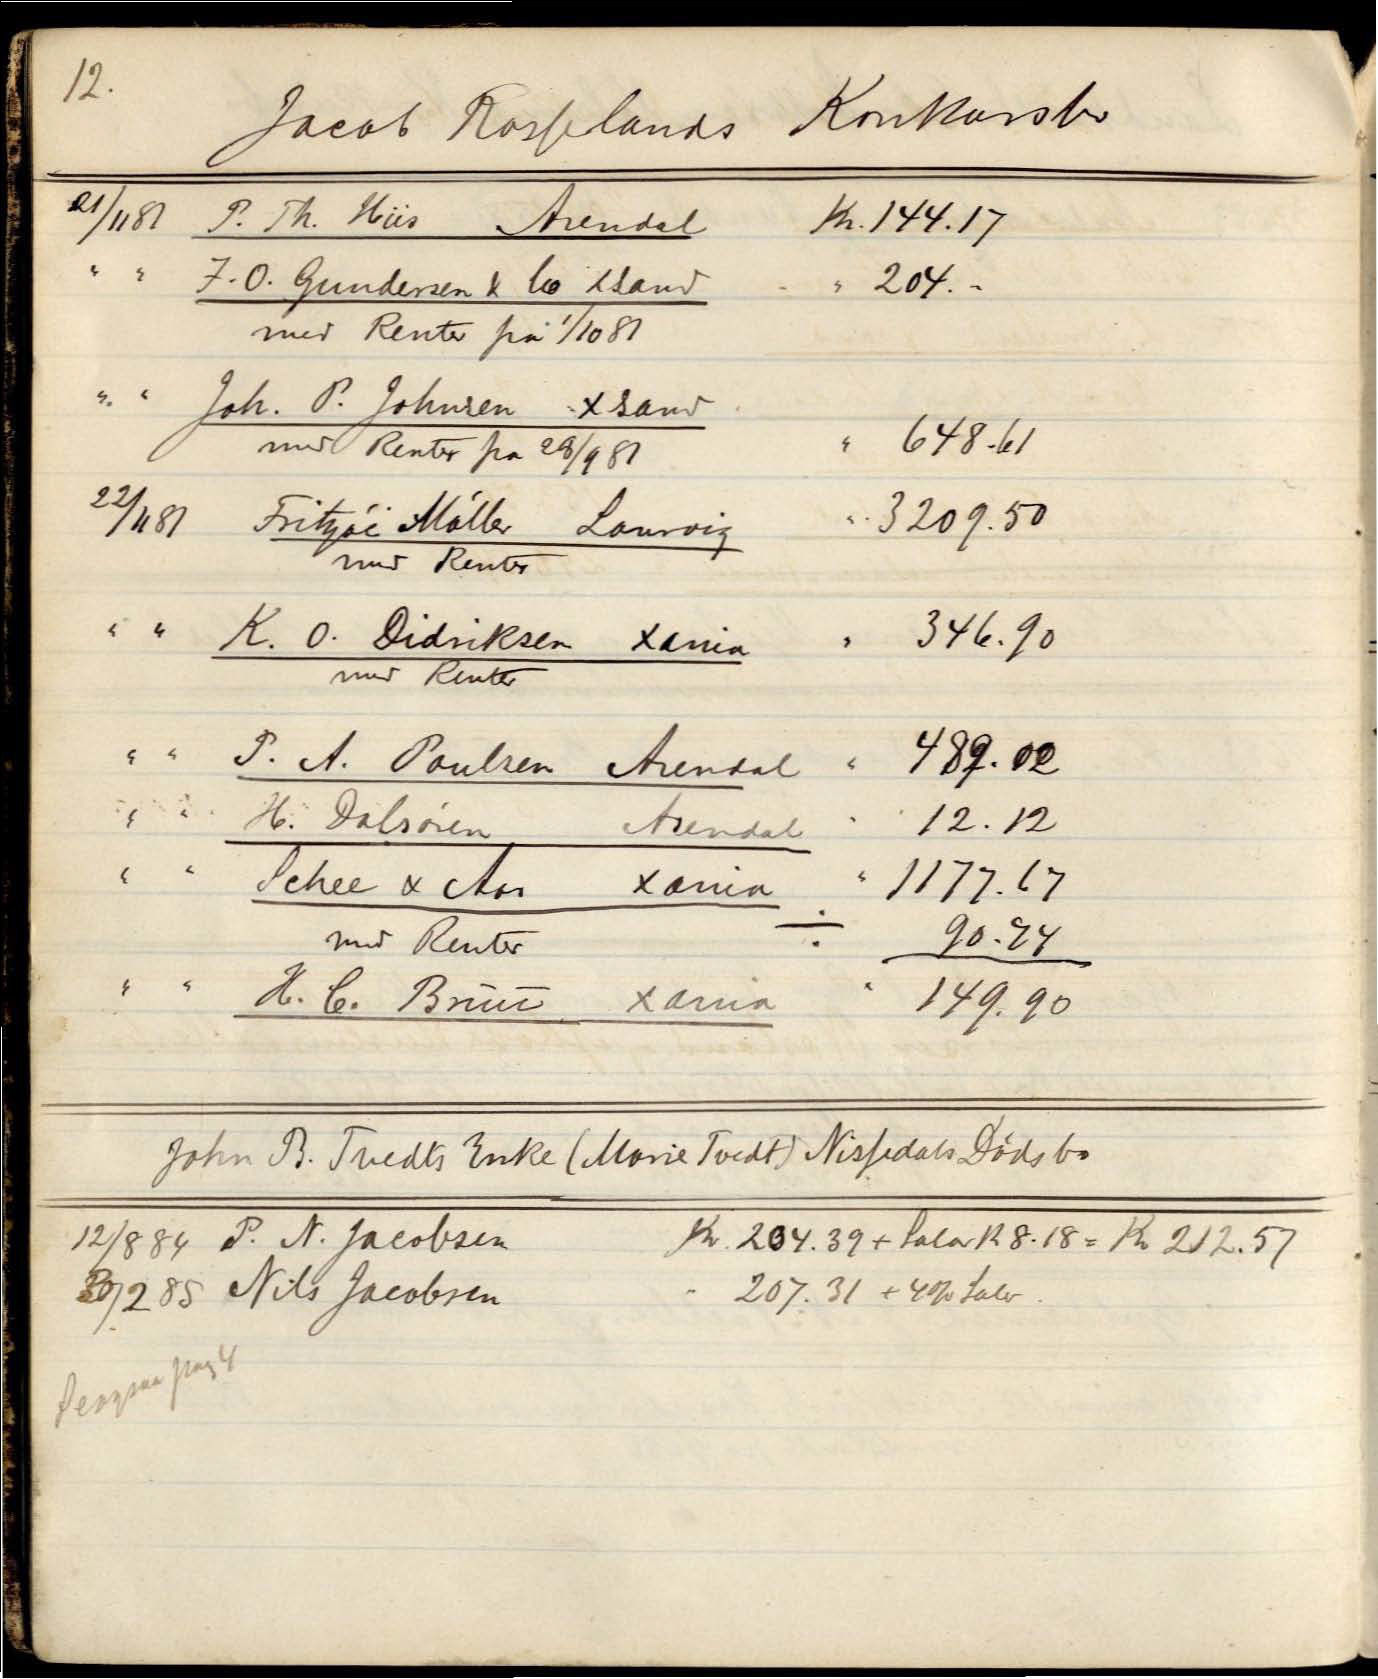 12.
Jacob Rosselands Konkursbo
21/11 81 P. Th. Hiis Arendal Kr. 144.17
" " F. O. Gundersen & Co Xsand " 204.-
med Renter fra 1/10 81
" " Joh. P. Johnsen Xsand
med Renter fra 28/9 81 " 648.61
22/11 81 Fritzøe Møller Laurvig " 3209.50
med Renter
" " K. O. Didriksen Xania " 346.90
med Renter
" " P. A. Poulsen Arendal " 489.02
" " H. Dalsøren Arendal " 12.12
" " Schee & Aas Xania " 1177.67
med Renter ÷ 90.74
" " H. C. Bruu Xania " 149.90
John B. Tvedts Enke (Marie Tvedt) Nissedals Dødsbo
12/8 84 P. N. Jacobsen Kr. 204.39 + Salar K 8.18 = Kr 212.57
20/2 85 Nils Jacobsen " 207.31 + 4% Salr.
pag 4